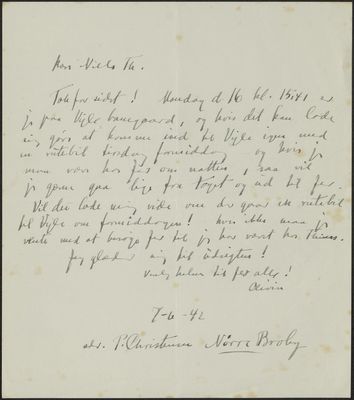 Kære Niels Th.
Tak for sidst! Mandag d 16 kl. 15.41 er
jeg paa Vejle banegaard, og hvis det kan lade
sig gøre at komme ind til Vejle igen med
en rutebil tirsdag formiddag og hvis jeg
maa være hos jer om natten, saa vil
jeg gerne gaa lige fra toget og ud til jer.
Vil du lade mig vide om der gaar en rutebil
til Vejle om formiddagen! hvis ikke maa jeg
vente med at besøge jer til jeg har været hos
Jeg glæder mig til udsigten!
Venlig hilsen til jer alle!
7-6-42
adr. P. Christensen Nørre Broby